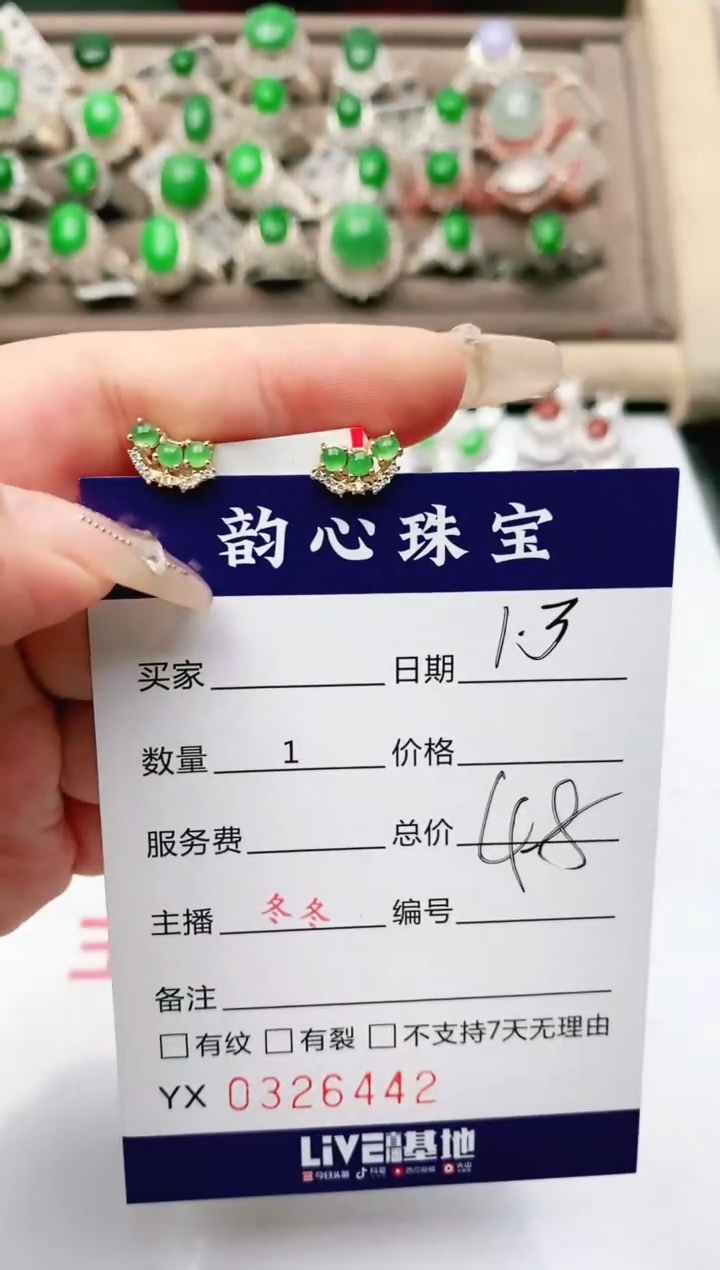 韵心珠宝
买家 日期 1.3
数量 1 价格
服务费 总价 48
主播 冬冬 编号
备注
□有纹 □有裂 □不支持7天无理由
YX 0326442
LiVE直播基地
今日头条 抖音 西瓜视频 火山